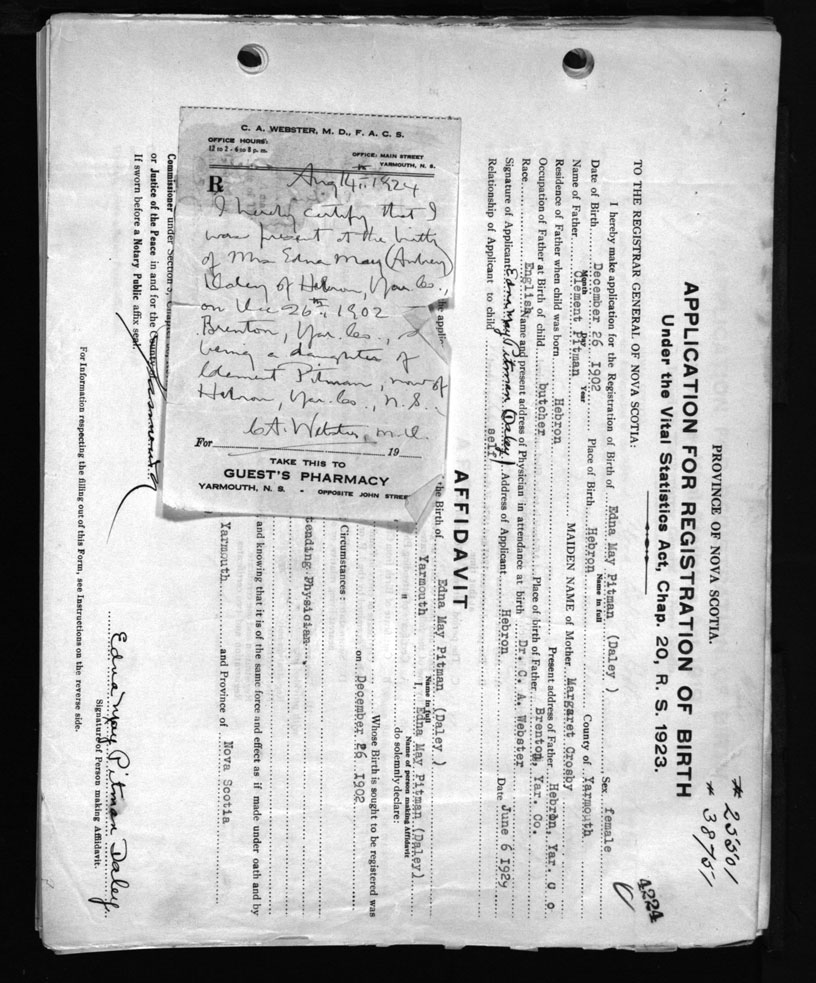 # 25501
# 38751
4224
PROVINCE OF NOVA SCOTIA.
APPLICATION FOR REGISTRATION OF BIRTH
Under the Vital Statistics Act, Chap. 20, R. S. 1923.
TO THE REGISTRAR GENERAL OF NOVA SCOTIA:
I hereby make application for the Registration of Birth of Edna May Pitman (Daley ) Sex female
Name in full
Date of Birth December 26 1902 Place of Birth Hebron County of Yarmouth
Month Day Year
Name of Father Clement Pitman MAIDEN NAME of Mother Margaret Crosby
Residence of Father when child was born Hebron Present address of Father Hebron, Yar. C o
Occupation of Father at Birth of child butcher Place of birth of Father Brenton, Yar. Co.
Race English Name and present address of Physician in attendance at birth Dr. C. A. Webster
Signature of Applicant Edna May Pitman (Daley) Address of Applicant Hebron Date June 6 1929
Relationship of Applicant to child self
AFFIDAVIT
the Birth of Edna May Pitman (Daley )
Name in full
Yarmouth I, Edna May Pitman (Daley)
Name of person making Affidavit
" do solemnly declare:
Whose Birth is sought to be registered was
on December 26 1902
Circumstances:
tending Physician
and knowing that it is of the same force and effect as if made under oath and by
Yarmouth and Province of Nova Scotia
Edna May Pitman Daley
Signature of Person making Affidavit.
Commissioner under Section
or Justice of the Peace in and for the
If sworn before a Notary Public affix seal
For Information respecting the filling out of this Form, see Instructions on the reverse side.
C. A. WEBSTER, M. D., F. A. C. S.
OFFICE HOURS:
12 to 2 - 6 to 8 p. m.
OFFICE: MAIN STREET
YARMOUTH, N. S.
R
Aug 14th, 1924
I hereby certify that I
was present at the birth
of Mrs Edna May (Aubrey)
Daley of Hebron, Yar. Co.,
on Dec 26th, 1902
Brenton, Yar. Co.,
being a daughter of
Clement Pitman, now of
Hebron, Yar. Co., N. S.
C. A. Webster, M. D.
For 19
TAKE THIS TO
GUEST'S PHARMACY
YARMOUTH, N. S. - OPPOSITE JOHN STREE